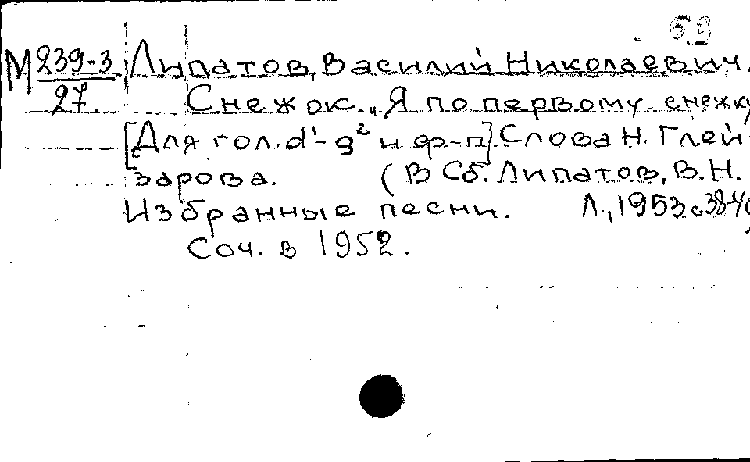 59
М 239-3 Липатов, Василий Николаевич.
27. Снежок. „Я по первому снежку
[Для гол. d¹-g² и ф-п]. Слова Н. Глей-
зарова. (В Сб. Липатов, В.Н.
Избранные песни. Л., 1953 с 38-4
Соч. в 1952.